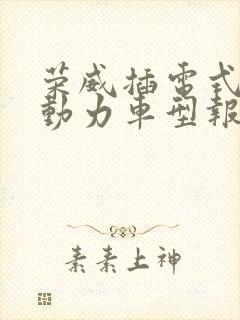 荣威插電式
動力車型報
素素上神